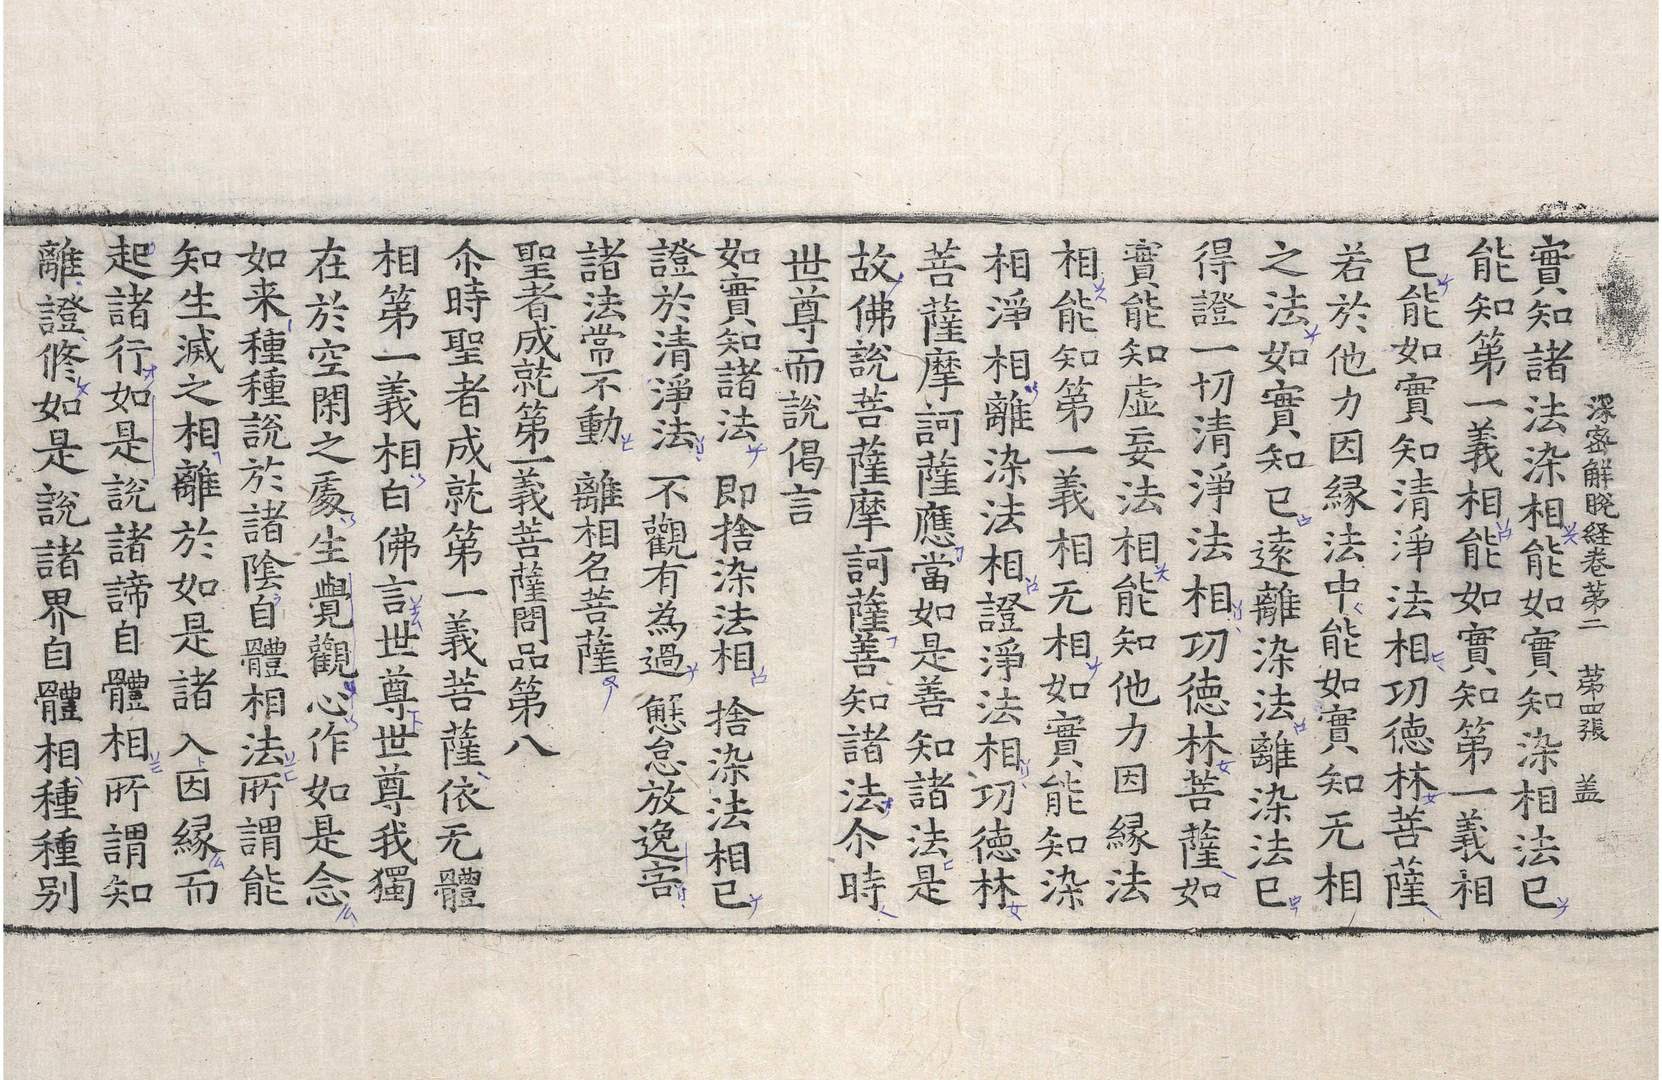 深密解脫経卷第二 第四張 盖
實知諸法染相能如實知染相法已
能知第一義相能如實知第一義相
已能如實知清淨法相功徳林菩薩
若於他力因縁法中能如實知无相
之法如實知已遠離染法離染法已
得證一切清淨法相功徳林菩薩如
實能知虛妄法相能知他力因縁法
相能知第一義相无相如實能知染
相淨相離染法相證淨法相功徳林
菩薩摩訶薩應當如是善知諸法是
故佛說菩薩摩訶薩善知諸法尒時
世尊而說偈言
如實知諸法 即捨染法相 捨染法相已
證於清淨法 不觀有為過 懈怠放逸害
諸法常不動 離相名菩薩
聖者成就第一義菩薩問品第八
尒時聖者成就第一義菩薩依无體
相第一義相白佛言世尊世尊我獨
在於空閑之處生覺觀心作如是念
如来種種說於諸陰自體相法所謂能
知生滅之相離於如是諸入因縁而
起諸行如是說諸諦自體相所謂知
離證修如是說諸界自體相種種别